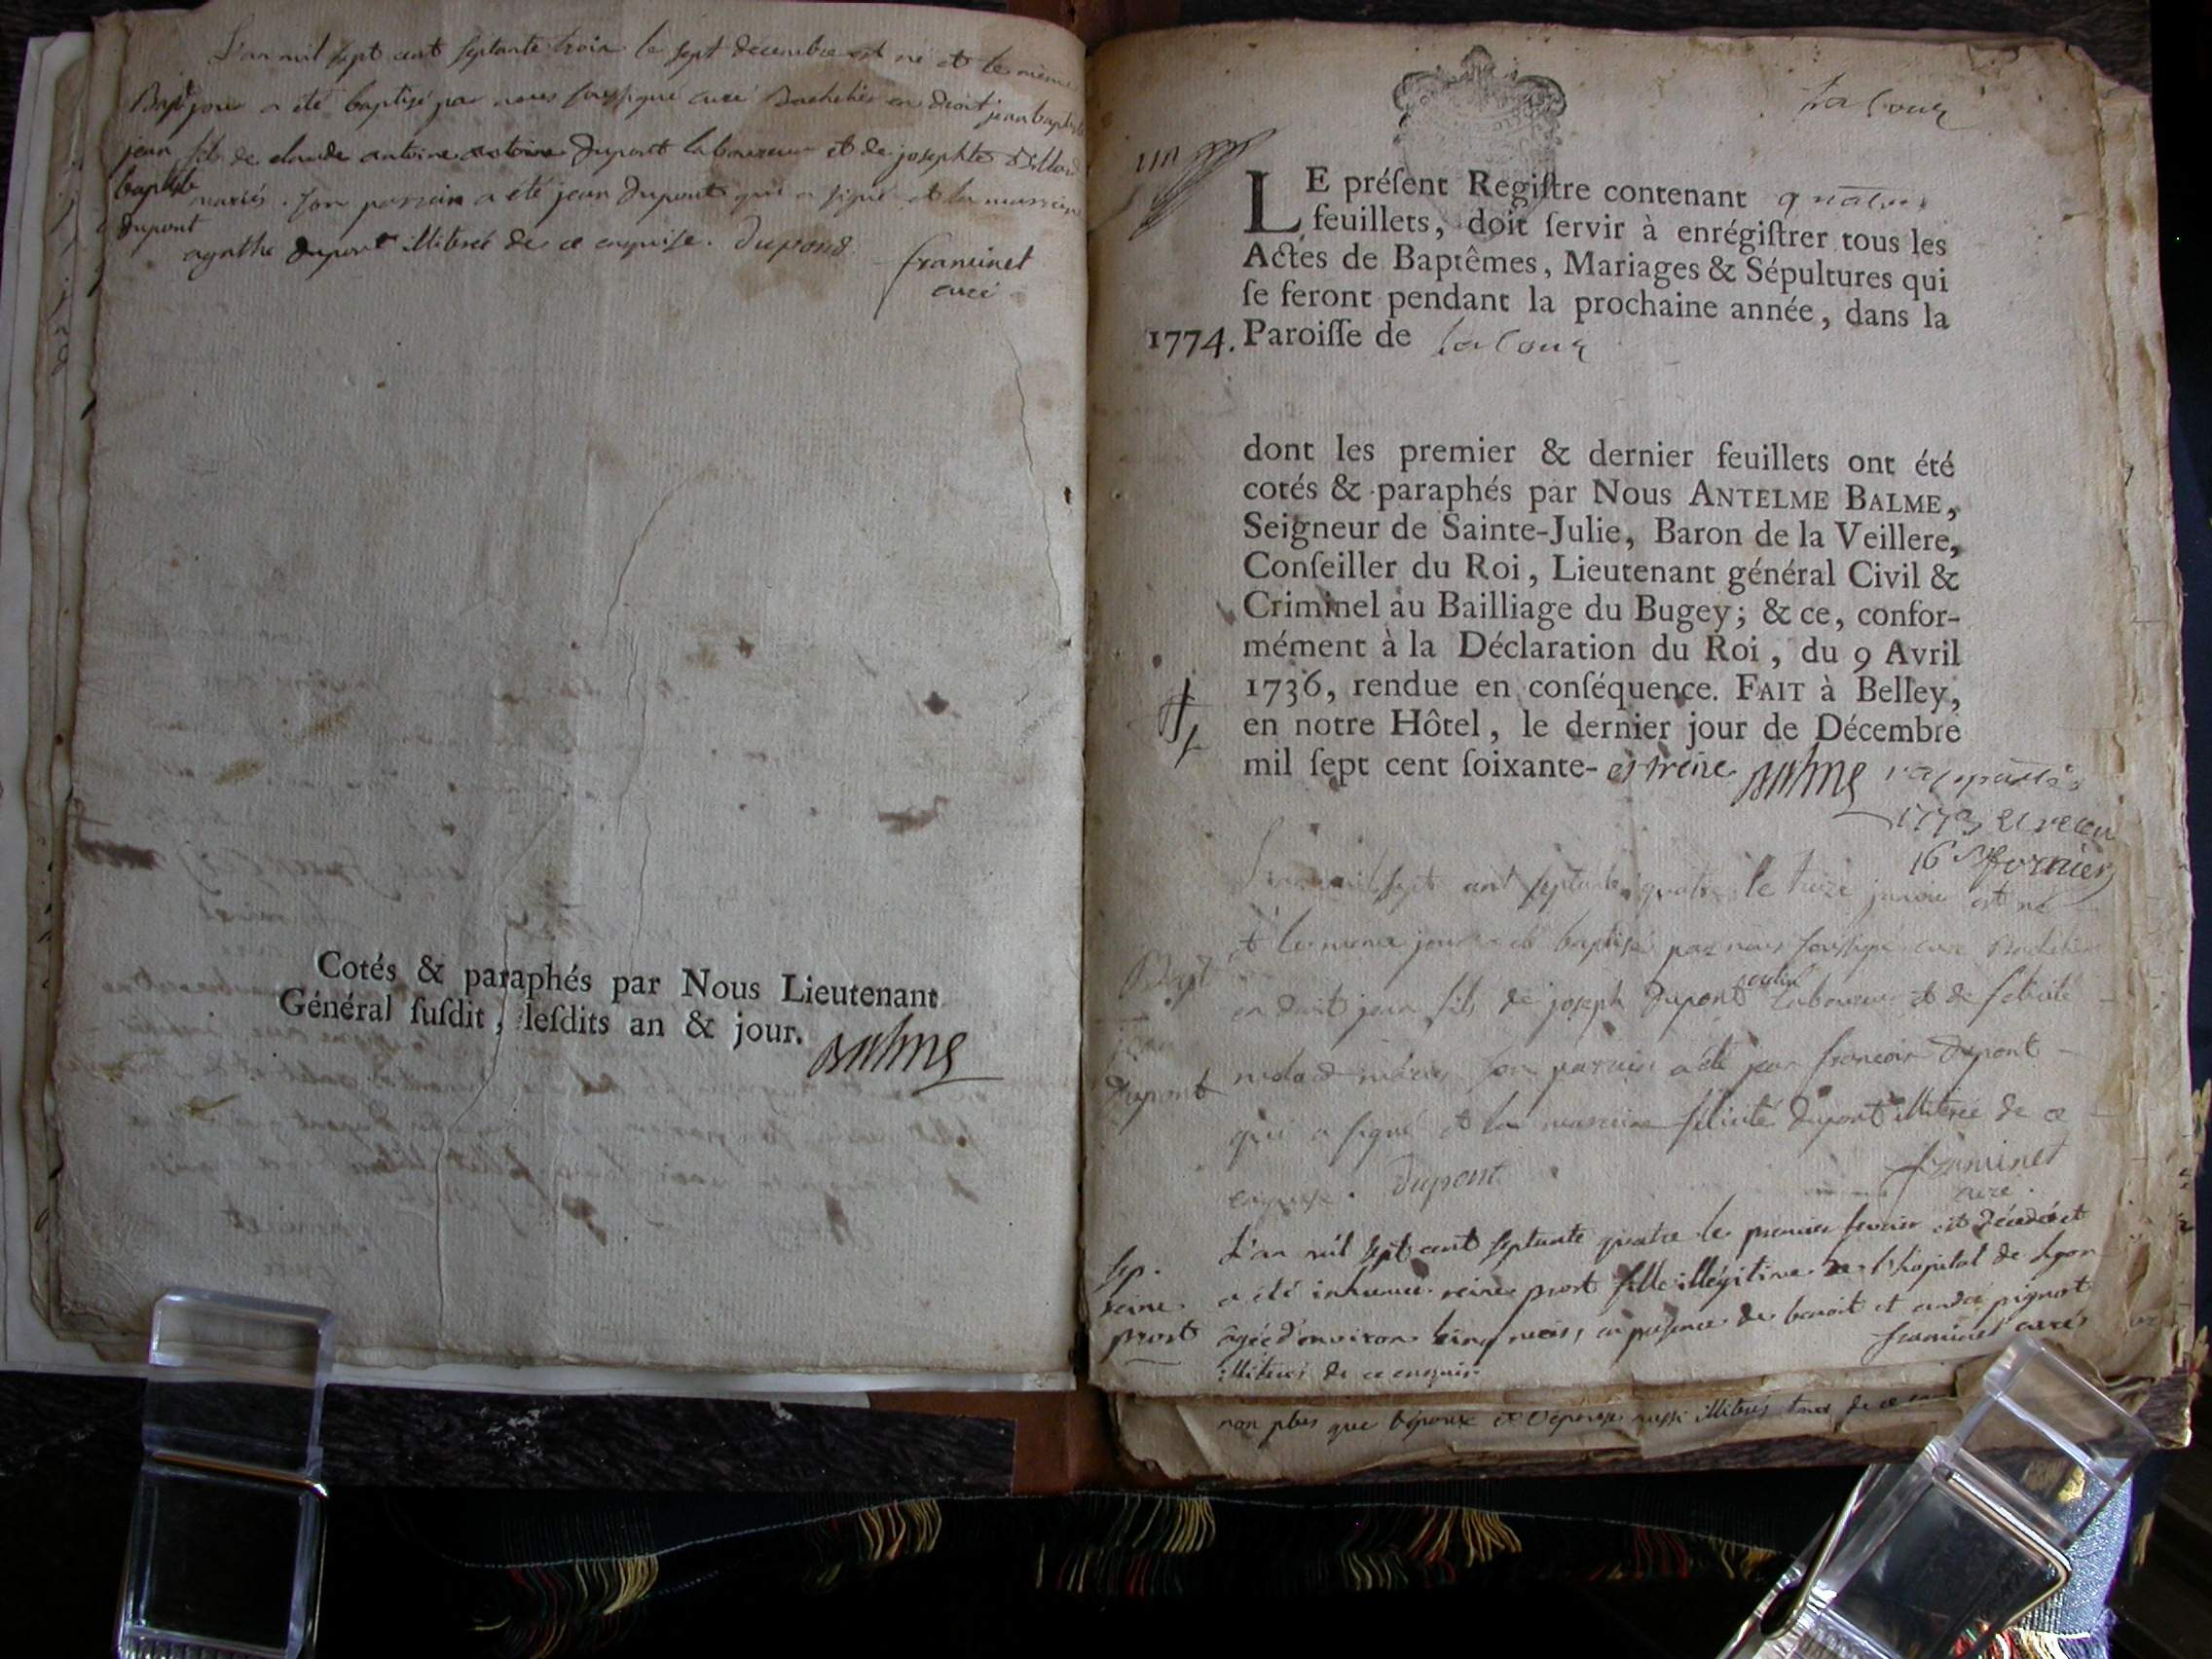 L'an mil sept cent septante trois le sept décembre est né et le même
Bapt jour a été baptisé par nous soussigné curé Bachelier en droit jean baptiste
jean fils de claude antoine Dupont laboureur et de josephte
baptiste mariés. son parrain a été jean Dupont qui a signé et la marreine
Dupont
agathe Dupont illiterée de ce enquise. Dupond
franminet
curé
Cotés & paraphés par Nous Lieutenant
Général ſuſdit, leſdits an & jour.
Balme
la coux
un
LE préſent Regiſtre contenant quatre
feuillets, doit ſervir à enrégiſtrer tous les
Actes de Baptêmes, Mariages & Sépultures qui
ſe feront pendant la prochaine année, dans la
1774. Paroiſſe de la coux
dont les premier & dernier feuillets ont été
cotés & paraphés par Nous ANTELME BALME,
Seigneur de Sainte-Julie, Baron de la Veillere,
Conſeiller du Roi, Lieutenant général Civil &
Criminel au Bailliage du Bugey; & ce, confor-
mément à la Déclaration du Roi, du 9 Avril
1736, rendue en conſéquence. FAIT à Belley,
en notre Hôtel, le dernier jour de Décembre
mil ſept cent ſoixante- et treize Balme
1773
16 s fornier
L'an mil sept cent septante quatre le treize janvier est né
et le meme jour a été baptisé par nous soussigné curé Bachelier
Bapt
en droit jean fils de joseph Dupont laboureur et de felicité
jean
mariés son parrain a été jean francois Dupont
Dupont
qui a signé et la marreine felicité Dupont illiterée de ce
enquise. Dupont
franminet
curé.
L'an mil sept cent septante quatre le premier fevrier est décédée et
sep.
a été inhumée reine prost fille illégitime de l'hôpital de Lyon
reine
âgée d'environ cinq mois, en presence de benoit et andré pignot
prost
illiterés de ce enquis. franminet curé
non plus que l'époux et l'épouse aussi illiterés tous de ce